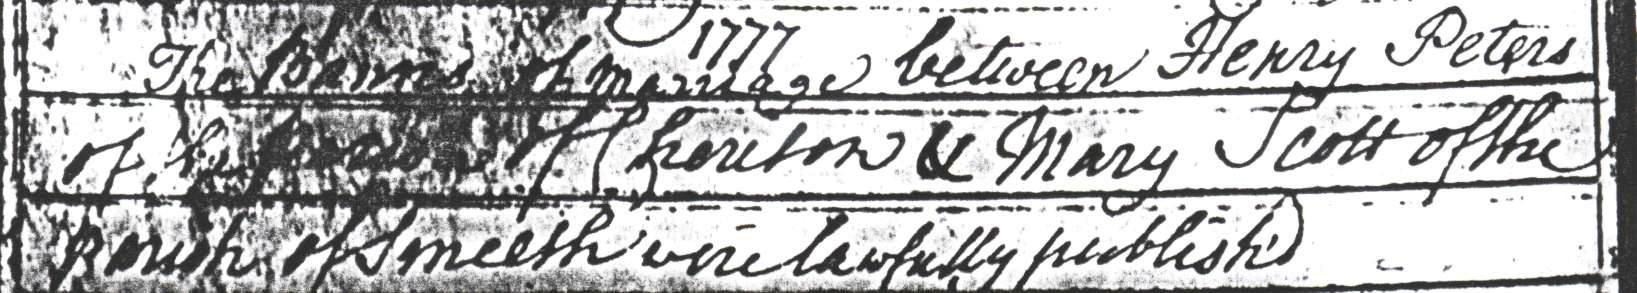 1777
The Banns of marriage between Henry Peters
of the parish of Cheriton & Mary Scott of the
parish of Smeeth were lawfully publish'd